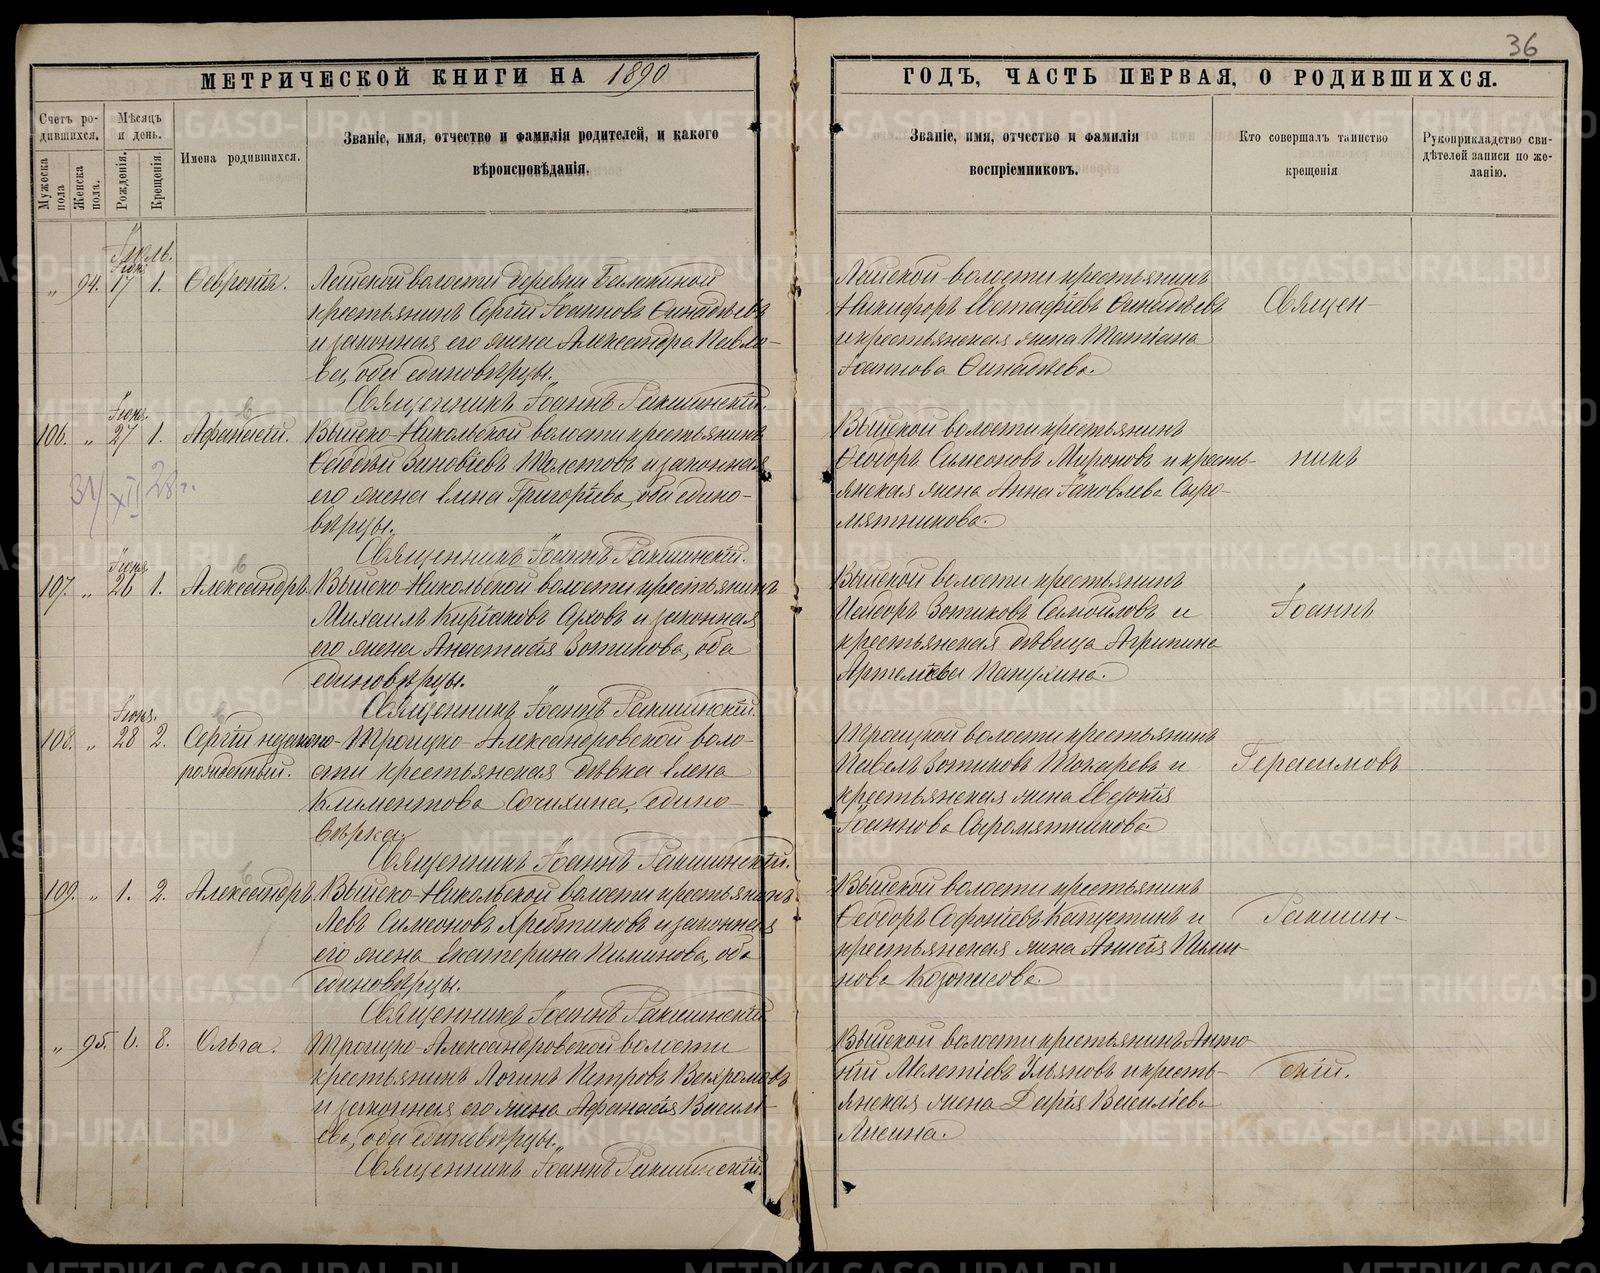 36
МЕТРИЧЕСКОЙ КНИГИ НА 1890
ГОДЪ, ЧАСТЬ ПЕРВАЯ, О РОДИВШИХСЯ.
Счетъ родившихся.
Мужеска пола
Женска пола.
Мѣсяцъ и день.
Рожденія.
Крещенія
Имена родившихся.
Званіе, имя, отчество и фамилія родителей, и какого
вѣроисповѣданія.
Званіе, имя, отчество и фамилія
воспріемниковъ.
Кто совершалъ таинство
крещенія
Рукоприкладство сви-
дѣтелей записи по же-
ланію.
Іюль.
Іюня
„ 94. 17 1. Февронія.
Лайской волости деревни
крестьянинъ Сергій Іоанновъ
и законная его жена Александра Павло-
ва, оба единовѣрцы.
Священникъ Іоаннъ Ракшинскій.
Лайской волости крестьянинъ
Никифоръ Евстафіевъ
и крестьянская жена Татіана
Іоаннова
Священ-
Іюня.
106. „ 27 1. Афанасій.
Выйско-Никольской волости крестьянинъ
Зиновіевъ и законная
его жена Елена Григоріева, оба едино-
вѣрцы.
Священникъ Іоаннъ Ракшинскій.
Выйской волости крестьянинъ
Ѳеодоръ Симеоновъ Мироновъ и кресть-
янская жена Анна Іаковлева Сыро-
мятникова.
никъ
31/XII 28 г.
Іюня
107. „ 26 1. Александръ
Выйско-Никольской волости крестьянинъ
Михаилъ Киріаковъ и законная
его жена Анастасія Зотикова, оба
единовѣрцы.
Священникъ Іоаннъ Ракшинскій.
Выйской волости крестьянинъ
Исидоръ Зотиковъ Самойловъ и
крестьянская дѣвица Агрипина
Іоаннъ
Іюня.
108. „ 28 2. Сергій незаконно-
рожденный.
Троицко-Александровской воло-
сти крестьянская дѣвка Елена
Климентова едино-
вѣрка.
Священникъ Іоаннъ Ракшинскій.
Троицкой волости крестьянинъ
Павелъ Зотиковъ Токаревъ и
крестьянская жена Евдокія
Іоаннова Сыромятникова
Герасимовъ
109. „ 1. 2. Александръ
Выйско-Никольской волости крестьянинъ
Левъ Симеоновъ Хребтиковъ и законная
его жена Екатерина Пиминова, оба
единовѣрцы.
Священникъ Іоаннъ Ракшинскій
Выйской волости крестьянинъ
Ѳеодоръ Софоніевъ Капустинъ и
крестьянская жена Анисія Пими-
нова
Ракшин-
„ 95. 6. 8. Ольга.
Троицко-Александровской волости
крестьянинъ Логинъ Петровъ Вахромовъ
и законная его жена Афанасія Василі-
ева, оба единовѣрцы.
Священникъ Іоаннъ Ракшинскій.
Выйской волости крестьянинъ Анто-
ній Мелетіевъ Ульяновъ и кресть-
янская жена Дарія Василіева
Лисина.
скій.
METRIKI.GASO-URAL.RU